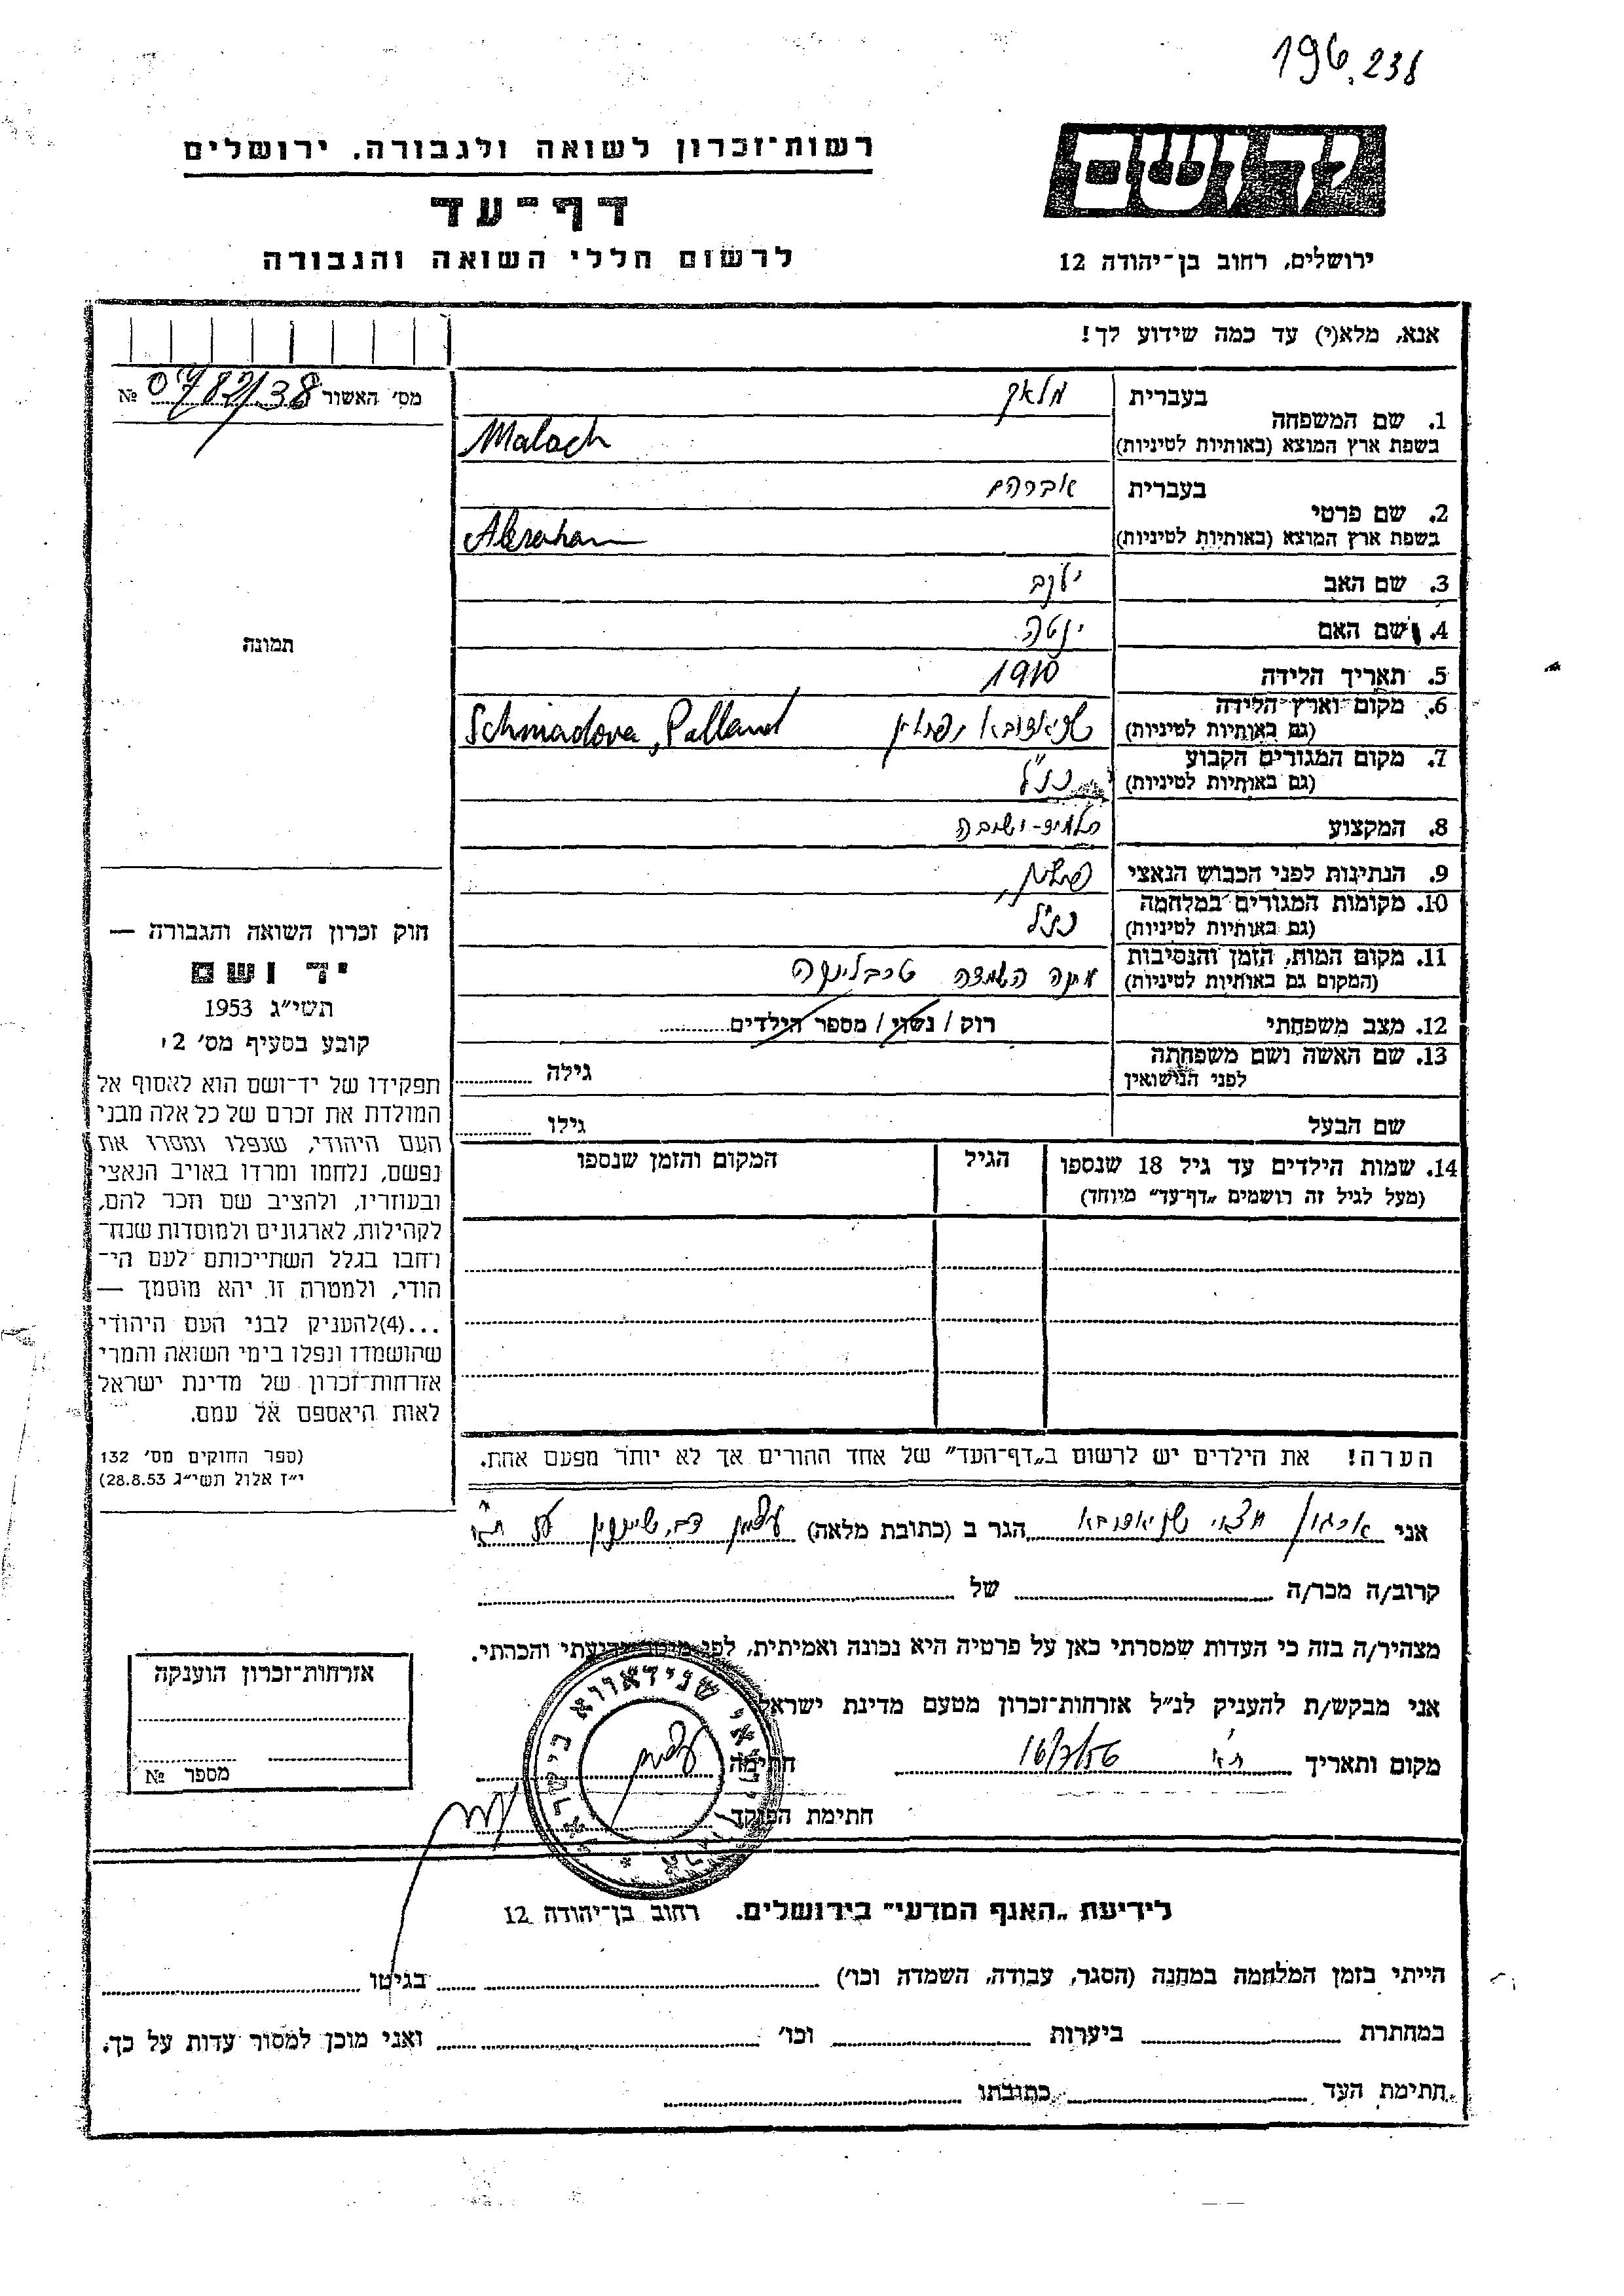 196,238
רשות־זכרון לשואה ולגבורה, ירושלים
דף־עד
לרשום חללי השואה והגבורה
ידושם
ירושלים, רחוב בן־יהודה 12
אנא, מלא(י) עד כמה שידוע לך!
מס׳ האשור 0782/38 №
1. שם המשפחה בעברית מלאך
בשפת ארץ המוצא (באותיות לטיניות) Malach
2. שם פרטי בעברית אברהם
בשפת ארץ המוצא (באותיות לטיניות) Abraham
3. שם האב יעקב
4. שם האם יטה
5. תאריך הלידה 1910
6. מקום וארץ הלידה
(גם באותיות לטיניות) Schniadova, Polland
7. מקום המגורים הקבוע
(גם באותיות לטיניות) כנ״ל
8. המקצוע תלמיד־ישיבה
9. הנתינות לפני הכבוש הנאצי
10. מקומות המגורים במלחמה
(גם באותיות לטיניות) כנ״ל
11. מקום המות, הזמן והנסיבות
(המקום גם באותיות לטיניות) מחנה השמדה טרבלינקה
12. מצב משפחתי רוק / נשוי / מספר הילדים
13. שם האשה ושם משפחתה
לפני הנישואין גילה
שם הבעל גילו
14. שמות הילדים עד גיל 18 שנספו הגיל המקום והזמן שנספו
(מעל לגיל זה רושמים „דף־עד״ מיוחד)
תמונה
חוק זכרון השואה והגבורה —
יד ושם
תשי״ג 1953
קובע בסעיף מס׳ 2י
תפקידו של יד־ושם הוא לאסוף אל
המולדת את זכרם של כל אלה מבני
העם היהודי, שנפלו ומסרו את
נפשם, נלחמו ומרדו באויב הנאצי
ובעוזריו, ולהציב שם וזכר להם,
לקהילות, לארגונים ולמוסדות שנח־
רחבו בגלל השתייכותם לעם הי־
הודי, ולמטרה זו יהא מוסמך —
...(4)להעניק לבני העם היהודי
שהושמדו ונפלו בימי השואה והמרי
אזרחות־זכרון של מדינת ישראל
לאות היאספם אל עמם.
(ספר החוקים מס׳ 132
י״ז אלול תשי״ג 28.8.53)
הערה! את הילדים יש לרשום ב„דף־העד״ של אחד ההורים אך לא יותר מפעם אחת.
אני ארגון יוצאי שניאדובא הגר ב (כתובת מלאה)
קרוב/ה מכר/ה של
מצהיר/ה בזה כי העדות שמסרתי כאן על פרטיה היא נכונה ואמיתית, לפי מיטב ידיעתי והכרתי.
אני מבקש/ת להעניק לנ״ל אזרחות־זכרון מטעם מדינת ישראל
מקום ותאריך ת״א 16/7/56 חתימה
חתימת הפוקד
ארגון יוצאי שנידאווא בישראל
אזרחות־זכרון הוענקה
מספר №
לידיעת „האגף המדעי״ בירושלים. רחוב בן־יהודה 12
הייתי בזמן המלחמה במחנה (הסגר, עבודה, השמדה וכו׳) בגיטו
במחתרת ביערות וכו׳ ואני מוכן למסור עדות על כך.
חתימת העד כתובתו